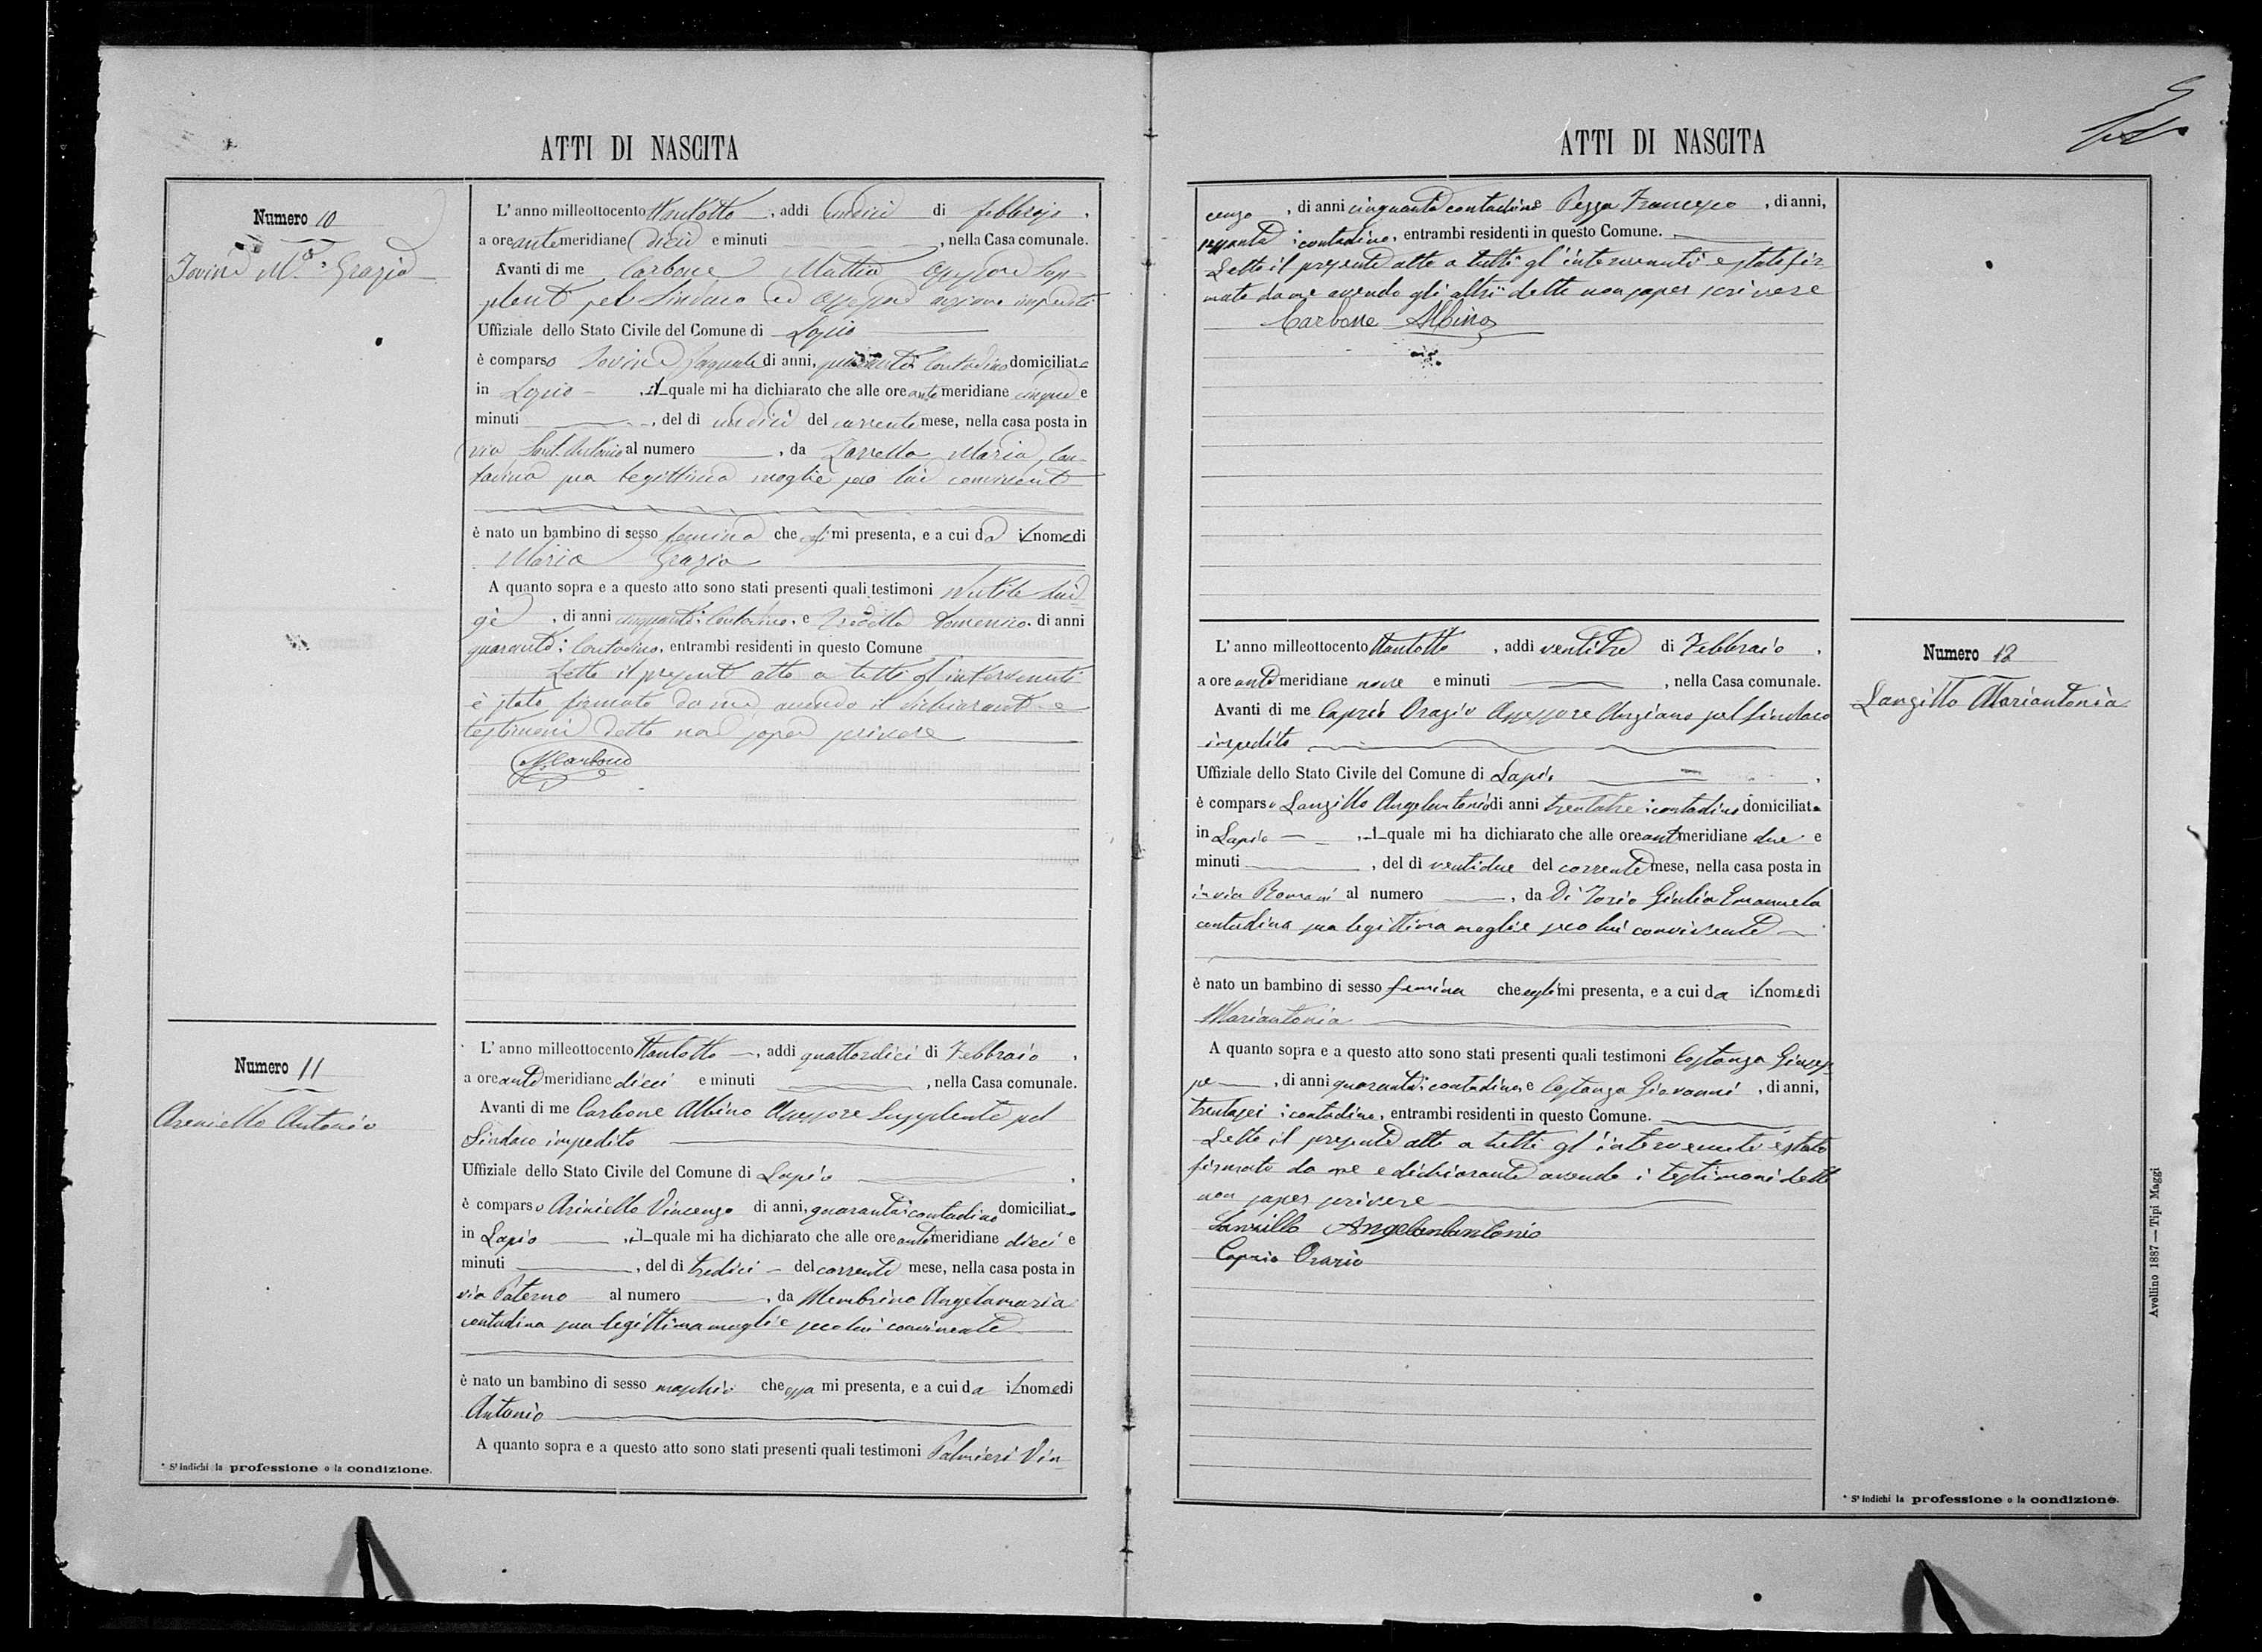 ATTI DI NASCITA
Numero 10
Iovine M.a Grazia
L'anno milleottocento ttantotto, addi undici di febbrajo,
a ore antemeridiane dieci e minuti, nella Casa comunale.
Avanti di me Carbone Mattia Assessore Sup-
plente pel Sindaco ed Assessore anziano impediti
Uffiziale dello Stato Civile del Comune di Lapio
è comparso Iovine Pasquale di anni, contadino domiciliato
in Lapio, il quale mi ha dichiarato che alle ore antemeridiane cinque e
minuti, del dì undici del corrente mese, nella casa posta in
via Sant'Antonio al numero, da Zarrella Maria, con-
tadina sua legittima moglie seco lui convivente
è nato un bambino di sesso femina che egli mi presenta, e a cui da il nome di
Maria Grazia
A quanto sopra e a questo atto sono stati presenti quali testimoni Lui
gi, di anni cinquanta: contadino, e Domenico, di anni
quaranta: contadino, entrambi residenti in questo Comune
Letto il presente atto a tutti gl'intervenuti
è stato firmato da me avendo il dichiarante e
testimoni detto non saper scrivere
M. Carbone
Numero 11
Ariniello Antonio
L'anno milleottocento ttantotto, addi quattordici di Febbraio,
a ore antemeridiane dieci e minuti, nella Casa comunale.
Avanti di me Carbone Albino Assessore Supplente pel
Sindaco impedito
Uffiziale dello Stato Civile del Comune di Lapio.
è comparso Ariniello Vincenzo di anni, quaranta: contadino domiciliato
in Lapio, il quale mi ha dichiarato che alle ore antimeridiane dieci e
minuti, del dì tredici del corrente mese, nella casa posta in
via Paterno al numero, da Membrino Angelamaria
contadina sua legittima moglie seco lui convivente
è nato un bambino di sesso maschio che essa mi presenta, e a cui da il nome di
Antonio
A quanto sopra e a questo atto sono stati presenti quali testimoni Palmieri Vin-
* S'indichi la professione o la condizione.
ATTI DI NASCITA
cenzo, di anni cinquanta contadino Pezza Francesco, di anni,
contadino, entrambi residenti in questo Comune.
Letto il presente atto a tutti gl'intervenuti è stato fir-
mato da me avendo gli altri detto non saper scrivere
Carbone Albino
L'anno milleottocento ttantotto, addi ventitre di Febbraio,
a ore antemeridiane nove e minuti, nella Casa comunale.
Avanti di me Caprio Orazio Assessore Anziano pel Sindaco
impedito
Uffiziale dello Stato Civile del Comune di Lapio.
è comparso Lanzillo Angelantonio di anni trentatre: contadino domiciliato
in Lapio, il quale mi ha dichiarato che alle ore antmeridiane due e
minuti, del dì ventidue del corrente mese, nella casa posta in
in via Romani al numero, da Di Iorio Giulia Emanuela
contadina sua legittima moglie seco lui convivente
è nato un bambino di sesso femina che egli mi presenta, e a cui da il nome di
Mariantonia
A quanto sopra e a questo atto sono stati presenti quali testimoni Costanza Giusep
pe, di anni quaranta: contadino, e Costanza Giovanni, di anni,
trentasei: contadino, entrambi residenti in questo Comune.
Letto il presente atto a tutti gl'intervenuti è stato
firmato da me e dichiarante avendo i testimoni detto
non saper scrivere
Lanzillo Angelantantonio
Caprio Orazio
Numero 12
Lanzillo Mariantonia
* S'indichi la professione o la condizione.
Avellino 1887 — Tipi Maggi